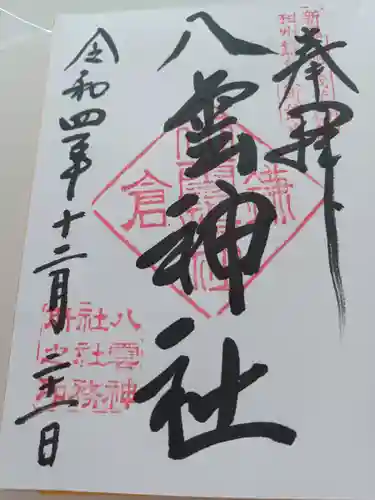 奉拝
八雲神社
令和四年十二月二十一日
鎌倉
八雲神
社社務